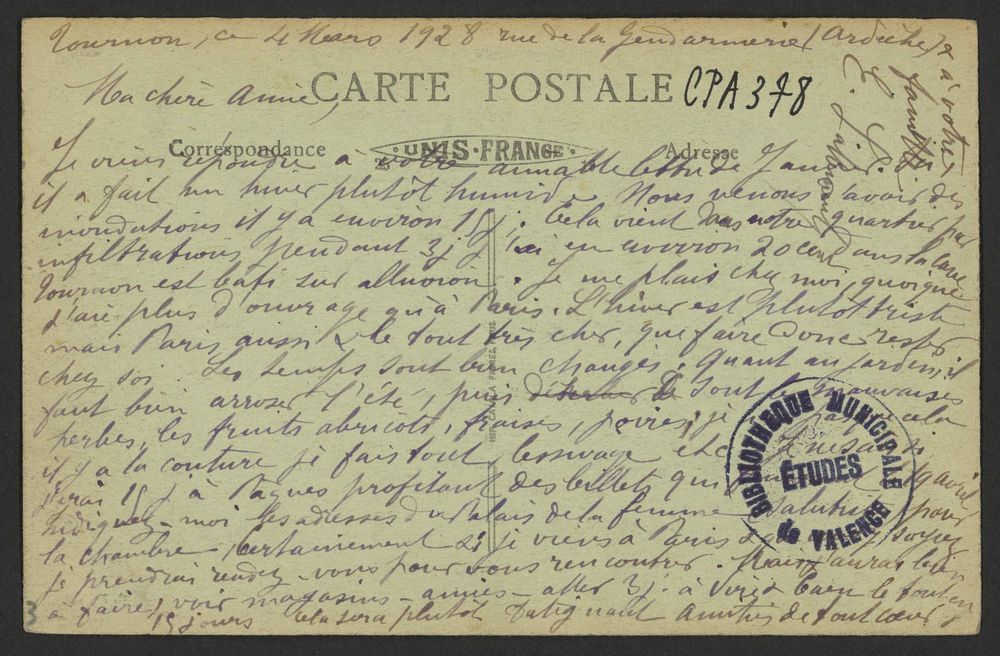 Tournon, ce 4 Mars 1928 rue de la Gendarmerie (Ardèche)
Ma chère Annie,
CARTE POSTALE
CPA 378
Correspondance
UNIS-FRANCE
Adresse
Je viens répondre à votre aimable lettre de Janvier
il a fait un hiver plutôt humide. Nous venons d'avoir des
inondations il y a environ 15 j. Cela vient dans notre quartier par
infiltrations pendant 3 j j'ai eu environ 20 cent dans la cave
Tournon est bâti sur alluvion. Je me plais chez moi, quoique
j'aie plus d'ouvrage qu'à Paris. L'hiver est plutôt triste
mais Paris aussi & le tout très cher, que faire donc rester
chez soi. Les temps sont bien changés, quant au jardin, il
faut bien arroser l'été, puis sont mauvaises
herbes, les fruits abricots, fraises, poires, je cela
il y a la couture je fais tout, lessivage etc
j'irai 15 j à Pâques profitant des billets qui avril
Indiquez-moi les adresses du Palais de la femme pour
la chambre, certainement si je viens à Paris soyez
je prendrai rendez-vous pour vous rencontrer. Mais j'aurai bien
à faire, voir magasins - amies - aller 3 j. à le tout en
15 jours cela sera plutôt fatiguant amitiés de tout cœur
& à votre
famille
BIBLIOTHEQUE MUNICIPALE
ÉTUDES
de VALENCE
3